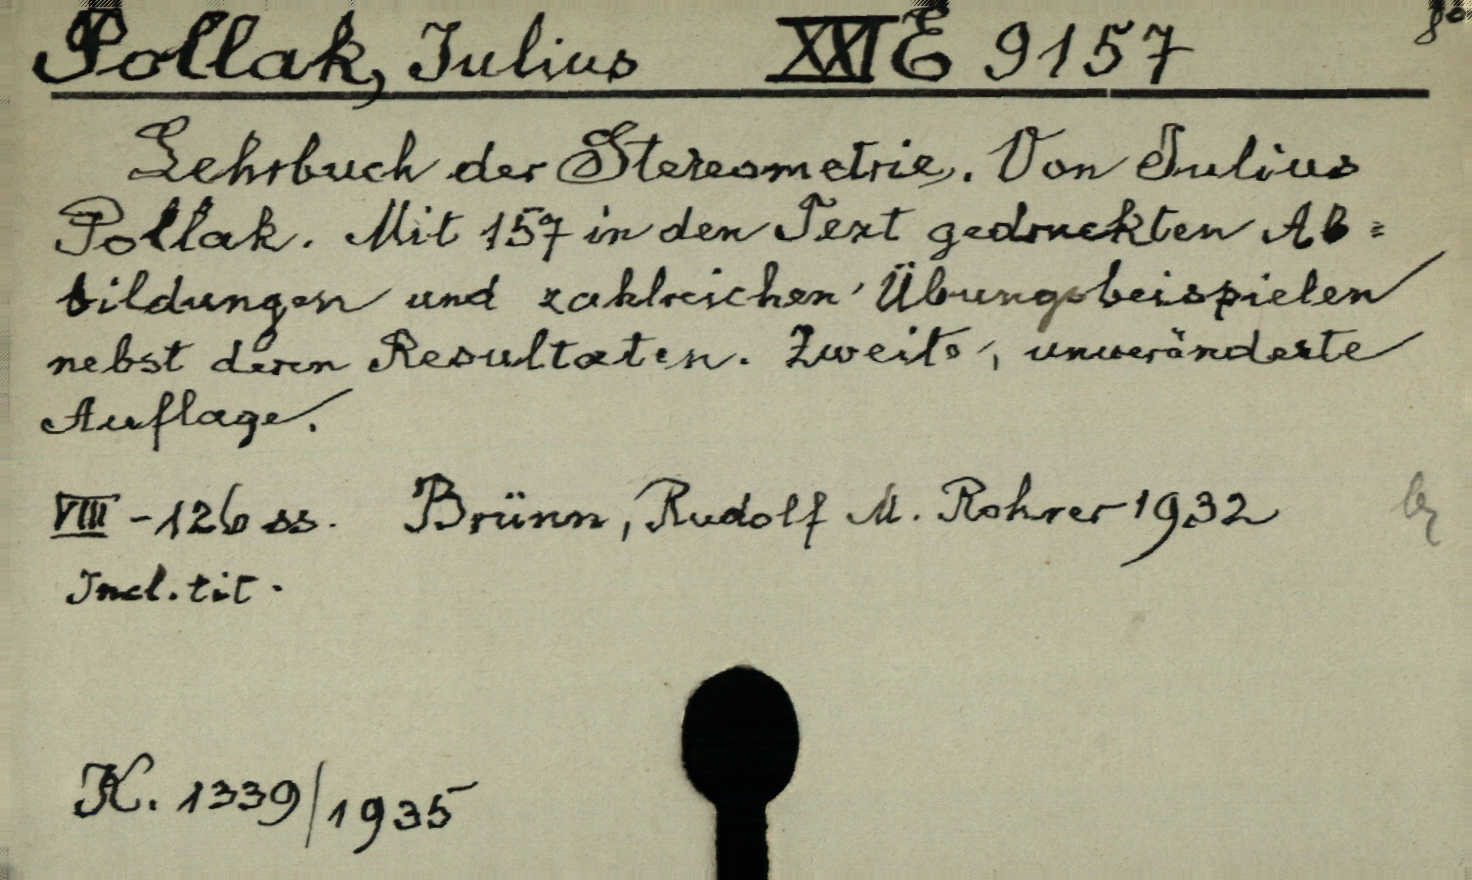 Pollak, Julius XXI E 9157 8°
Lehrbuch der Stereometrie. Von Julius
Pollak. Mit 157 in den Text gedruckten Ab=
bildungen und zahlreichen Übungsbeispielen
nebst deren Resultaten. Zweite, unveränderte
Auflage.
VIII - 126 ss. Brünn, Rudolf M. Rohrer 1932
Incl. tit.
K. 1339/1935